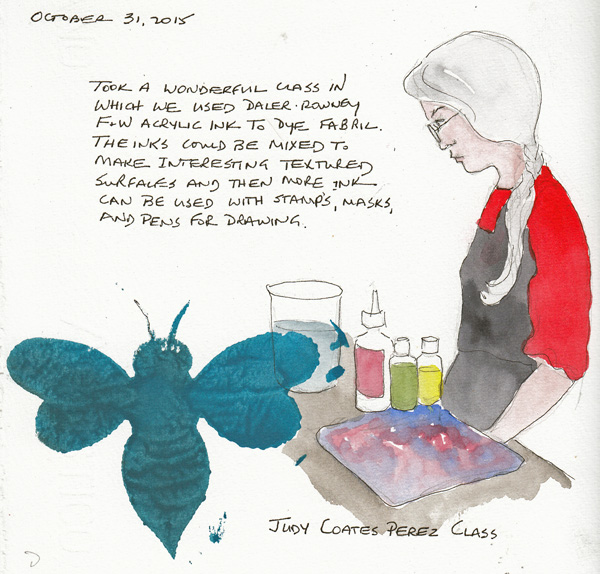 OCTOBER 31, 2015
TOOK A WONDERFUL CLASS IN
WHICH WE USED DALER·ROWNEY
F+W ACRYLIC INK TO DYE FABRIC.
THE INKS COULD BE MIXED TO
MAKE INTERESTING TEXTURED
SURFACES AND THEN MORE INK
CAN BE USED WITH STAMPS, MASKS,
AND PENS FOR DRAWING.
JUDY COATES PEREZ CLASS